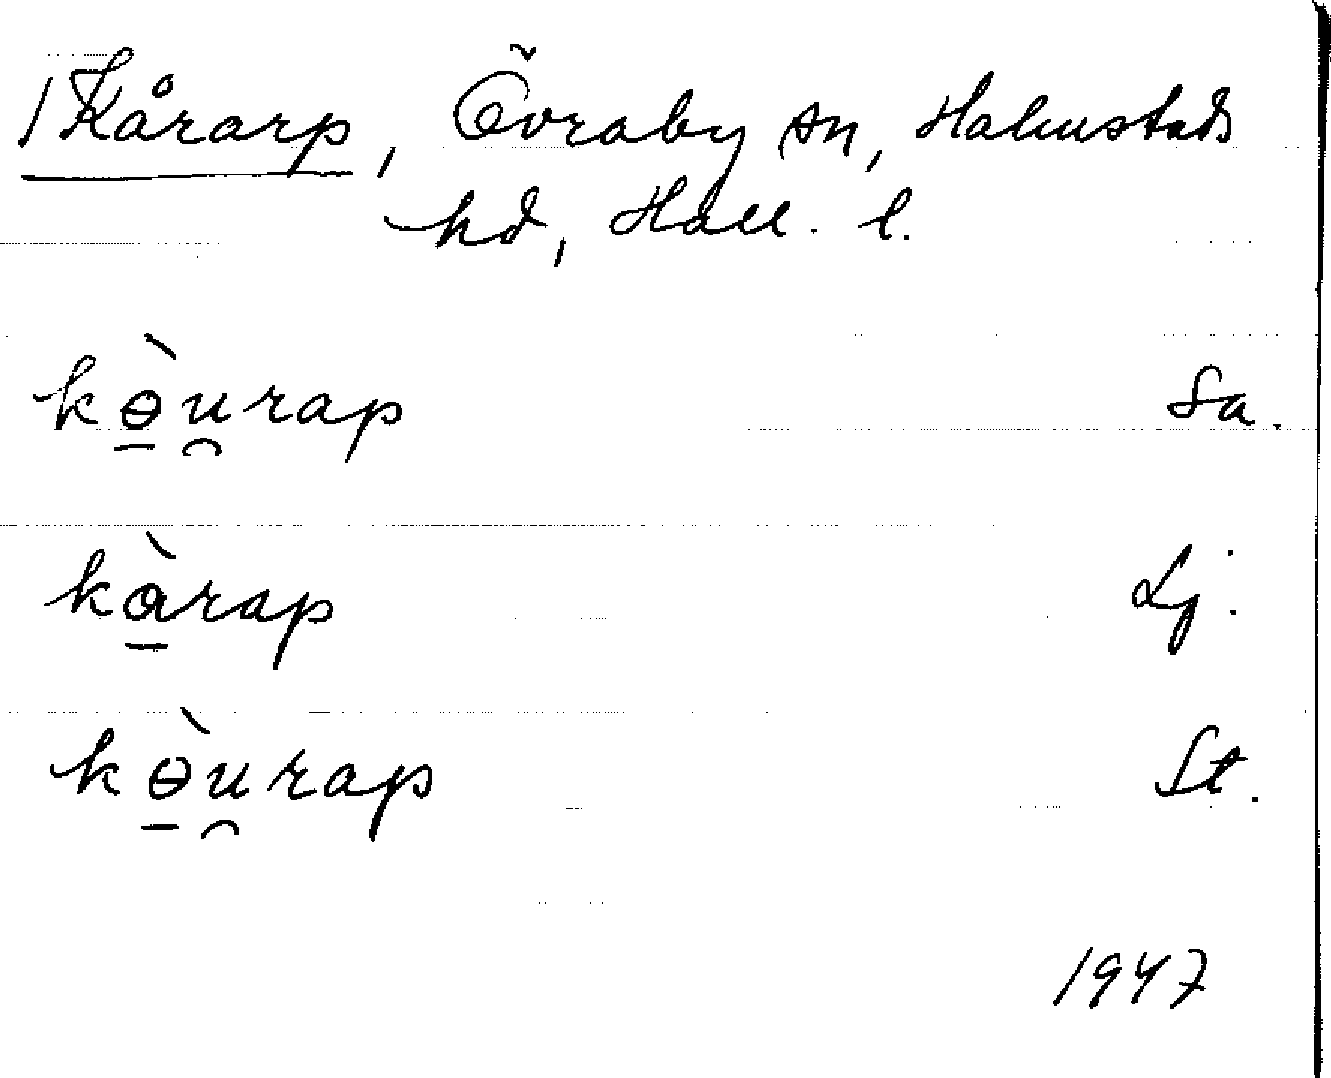 /Kårarp, Övraby sn, Halmstads
hd, Hall. l.
kɵ̱̀u̯rap Sa.
kà̱rap Lj.
kɵ̱̀u̯rap St.
1947